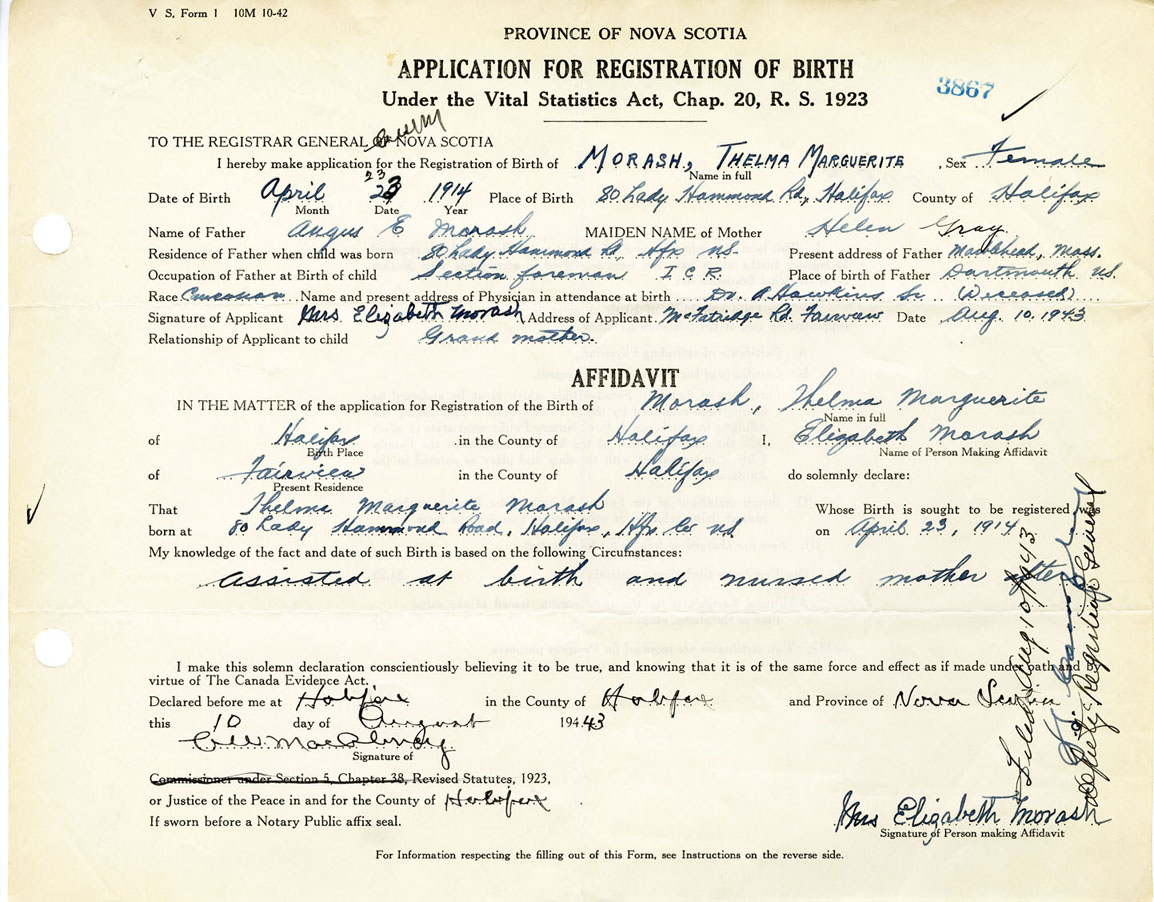 V S. Form 1 10M 10-42
PROVINCE OF NOVA SCOTIA
APPLICATION FOR REGISTRATION OF BIRTH
3867
Under the Vital Statistics Act, Chap. 20, R. S. 1923
TO THE REGISTRAR GENERAL OF NOVA SCOTIA
I hereby make application for the Registration of Birth of MORASH, THELMA MARGUERITE, Sex Female
Name in full
23
Date of Birth April 23 1914 Place of Birth 80 Lady Hammond Rd, Halifax County of Halifax
Month Date Year
Name of Father Angus E Morash MAIDEN NAME of Mother Helen Gray.
Residence of Father when child was born 80 Lady Hammond Rd, Hfx NS. Present address of Father Mass.
Occupation of Father at Birth of child Section foreman I C R. Place of birth of Father Dartmouth NS.
Race Caucasian Name and present address of Physician in attendance at birth Dr. A Hawkins Sr (Deceased)
Signature of Applicant Mrs Elizabeth Morash Address of Applicant McFatridge Rd. Fairview Date Aug. 10. 1943
Relationship of Applicant to child Grand mother.
AFFIDAVIT
IN THE MATTER of the application for Registration of the Birth of Morash, Thelma Marguerite
Name in full
of Halifax in the County of Halifax I, Elizabeth Morash
Birth Place Name of Person Making Affidavit
of Fairview in the County of Halifax do solemnly declare:
Present Residence
That Thelma Marguerite Morash Whose Birth is sought to be registered was
born at 80 Lady Hammond Road, Halifax, Hfx Co NS on April 23, 1914
My knowledge of the fact and date of such Birth is based on the following Circumstances:
Assisted at birth and nursed mother after
I make this solemn declaration conscientiously believing it to be true, and knowing that it is of the same force and effect as if made under oath and
virtue of The Canada Evidence Act.
Declared before me at Halifax in the County of Halifax and Province of Nova Scotia
this 10 day of August 194.43
Signature of
Commissioner under Section 5, Chapter 38, Revised Statutes, 1923,
or Justice of the Peace in and for the County of Halifax
If sworn before a Notary Public affix seal.
Mrs Elizabeth Morash
Signature of Person making Affidavit
For Information respecting the filling out of this Form, see Instructions on the reverse side.
Filed Aug 10th 1943
Deputy Registrar General